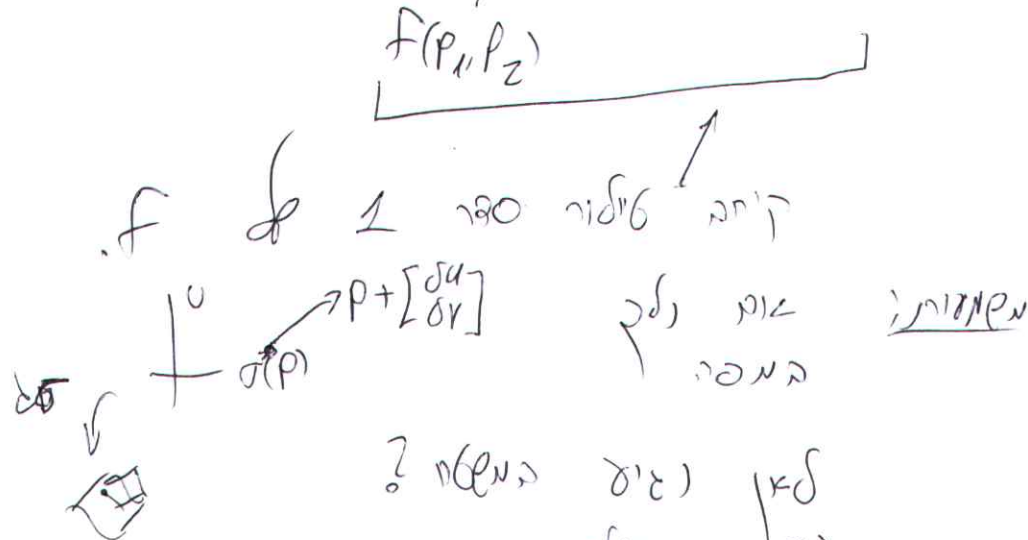 f(p₁, p₂)
קירוב טיילור סדר 1 של f.
משמעות: אם נלך
במפה
U
p + [δu δv]
σ(p)
לאן נגיע במשטח?